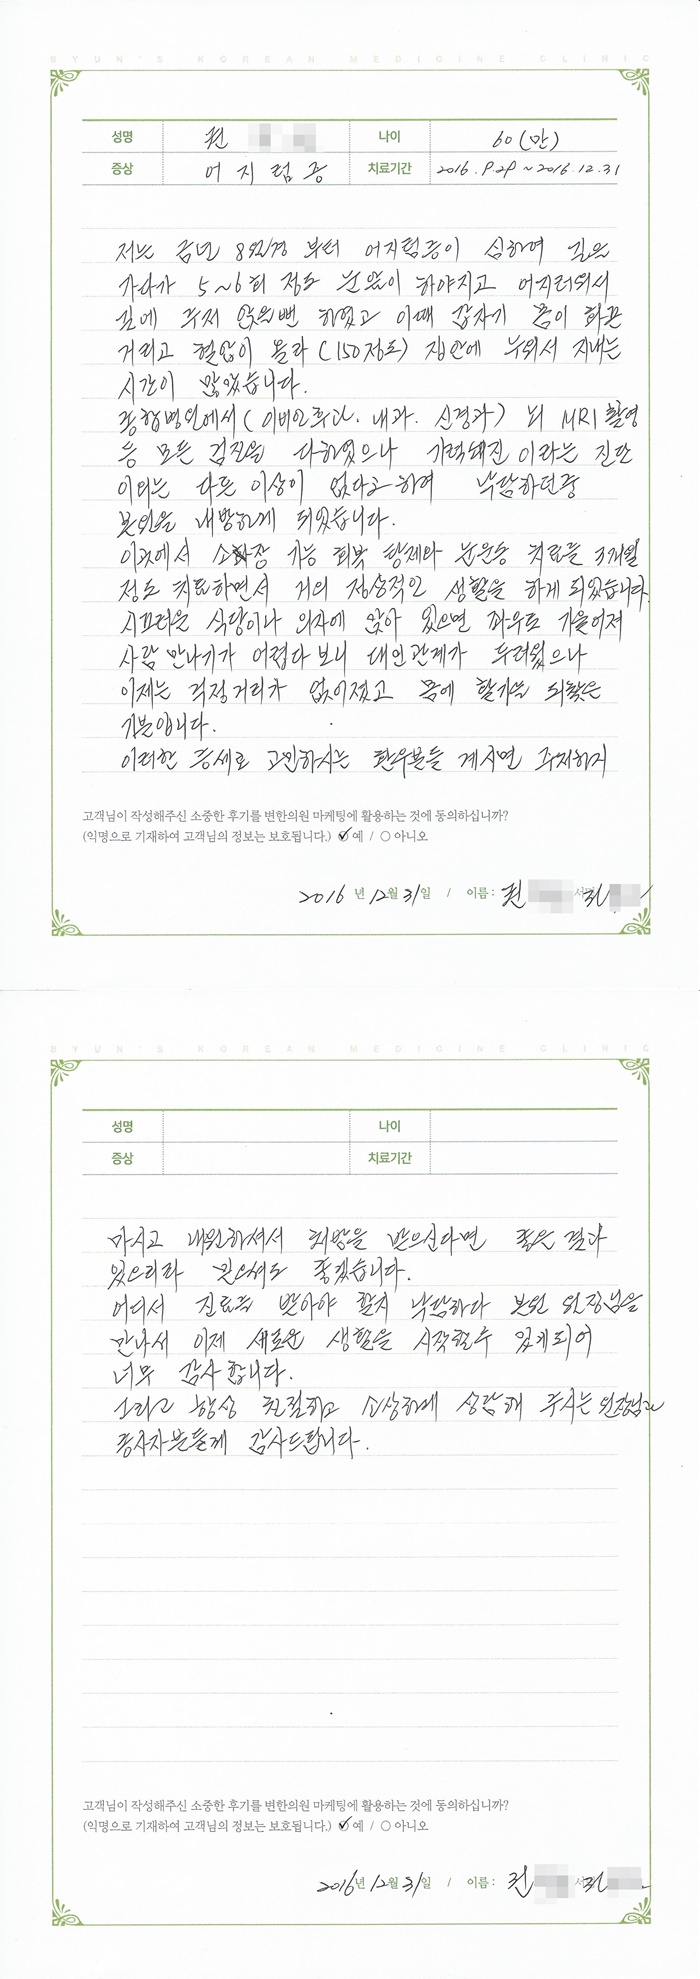 BYUN'S KOREAN MEDICINE CLINIC
성명 권 나이 60(만)
증상 어지럼증 치료기간 2016.9.29 ~ 2016.12.31
저는 금년 8월경 부터 어지럼증이 심하여 길을
가다가 5~6회 정도 눈앞이 하야지고 어지러워서
길에 주저 앉을뻔 하였고 이때 갑자기 몸이 화끈
거리고 혈압이 올라(150정도) 집안에 누워서 지내는
시간이 많았습니다.
종합병원에서(이비인후과. 내과. 신경과) 뇌 MRI 촬영
등 모든 검진을 다하였으나 기력쇄진 이라는 진단
이외는 다른 이상이 없다고 하며 낙담하던중
본원을 내방하게 되었습니다.
이곳에서 소화장 기능 회복 탕제와 눈운동 치료를 3개월
정도 치료하면서 거의 정상적인 생활을 하게 되었습니다.
시끄러운 식당이나 의자에 앉아 있으면 좌우로 기울어져
사람 만나기가 어렵다 보니 대인관계가 두려웠으나
이제는 걱정거리가 없어졌고 몸에 활기를 되찾은
기분입니다.
이러한 증세로 고민하시는 환우분들 계시면 주저하지
고객님이 작성해주신 소중한 후기를 변한의원 마케팅에 활용하는 것에 동의하십니까?
(익명으로 기재하여 고객님의 정보는 보호됩니다.) ✓ 예 / ○ 아니오
2016 년 12월 31일 / 이름 : 권
BYUN'S KOREAN MEDICINE CLINIC
성명 나이
증상 치료기간
마시고 내원하셔서 처방을 받으신다면 좋은 결과
있으리라 믿으셔도 좋겠습니다.
어디서 진료를 받아야 할지 낙담하다 본원 원장님을
만나서 이제 새로운 생활을 시작할수 있게되어
너무 감사합니다.
그리고 항상 친절하고 소상하게 상담해 주시는 원장님과
종사자분들께 감사드립니다.
고객님이 작성해주신 소중한 후기를 변한의원 마케팅에 활용하는 것에 동의하십니까?
(익명으로 기재하여 고객님의 정보는 보호됩니다.) ✓ 예 / ○ 아니오
2016년 12월 31일 / 이름 : 권